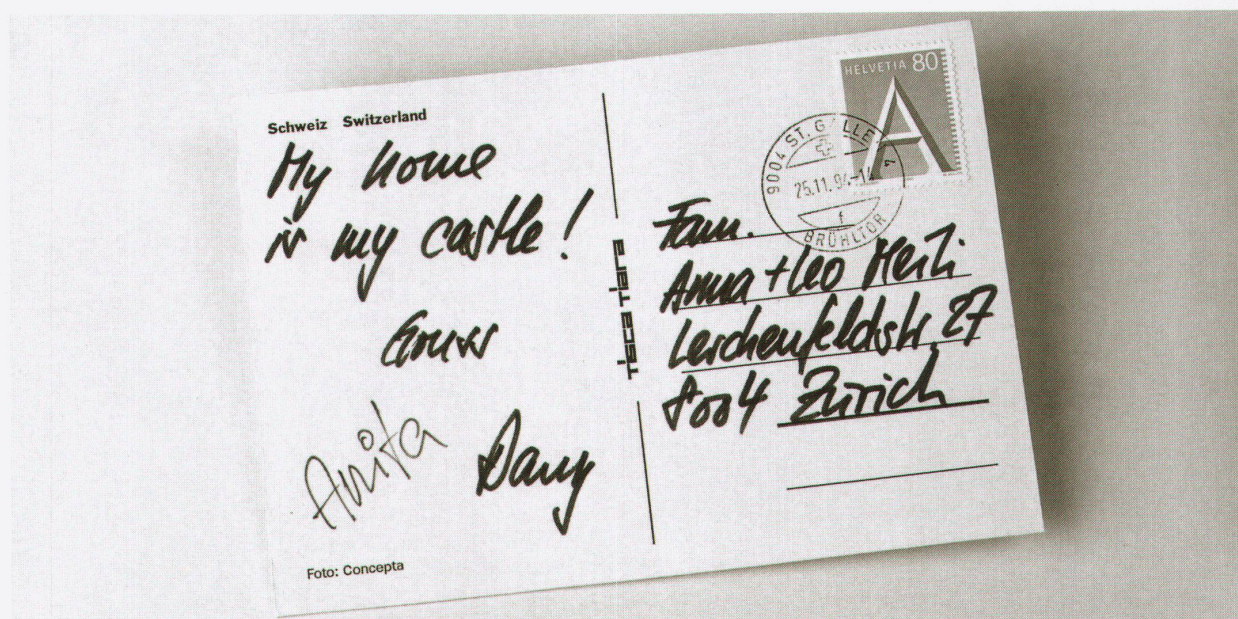 Schweiz Switzerland
My home
is my castle!
Gruss
Anita
Dany
Foto: Concepta
tisca tiara
HELVETIA 80
A
9004 ST. GALLEN
25.11.94-14
f
BRÜHLTOR
Fam.
Anna + Leo
Lerchenfeldstr. 27
8004 Zürich